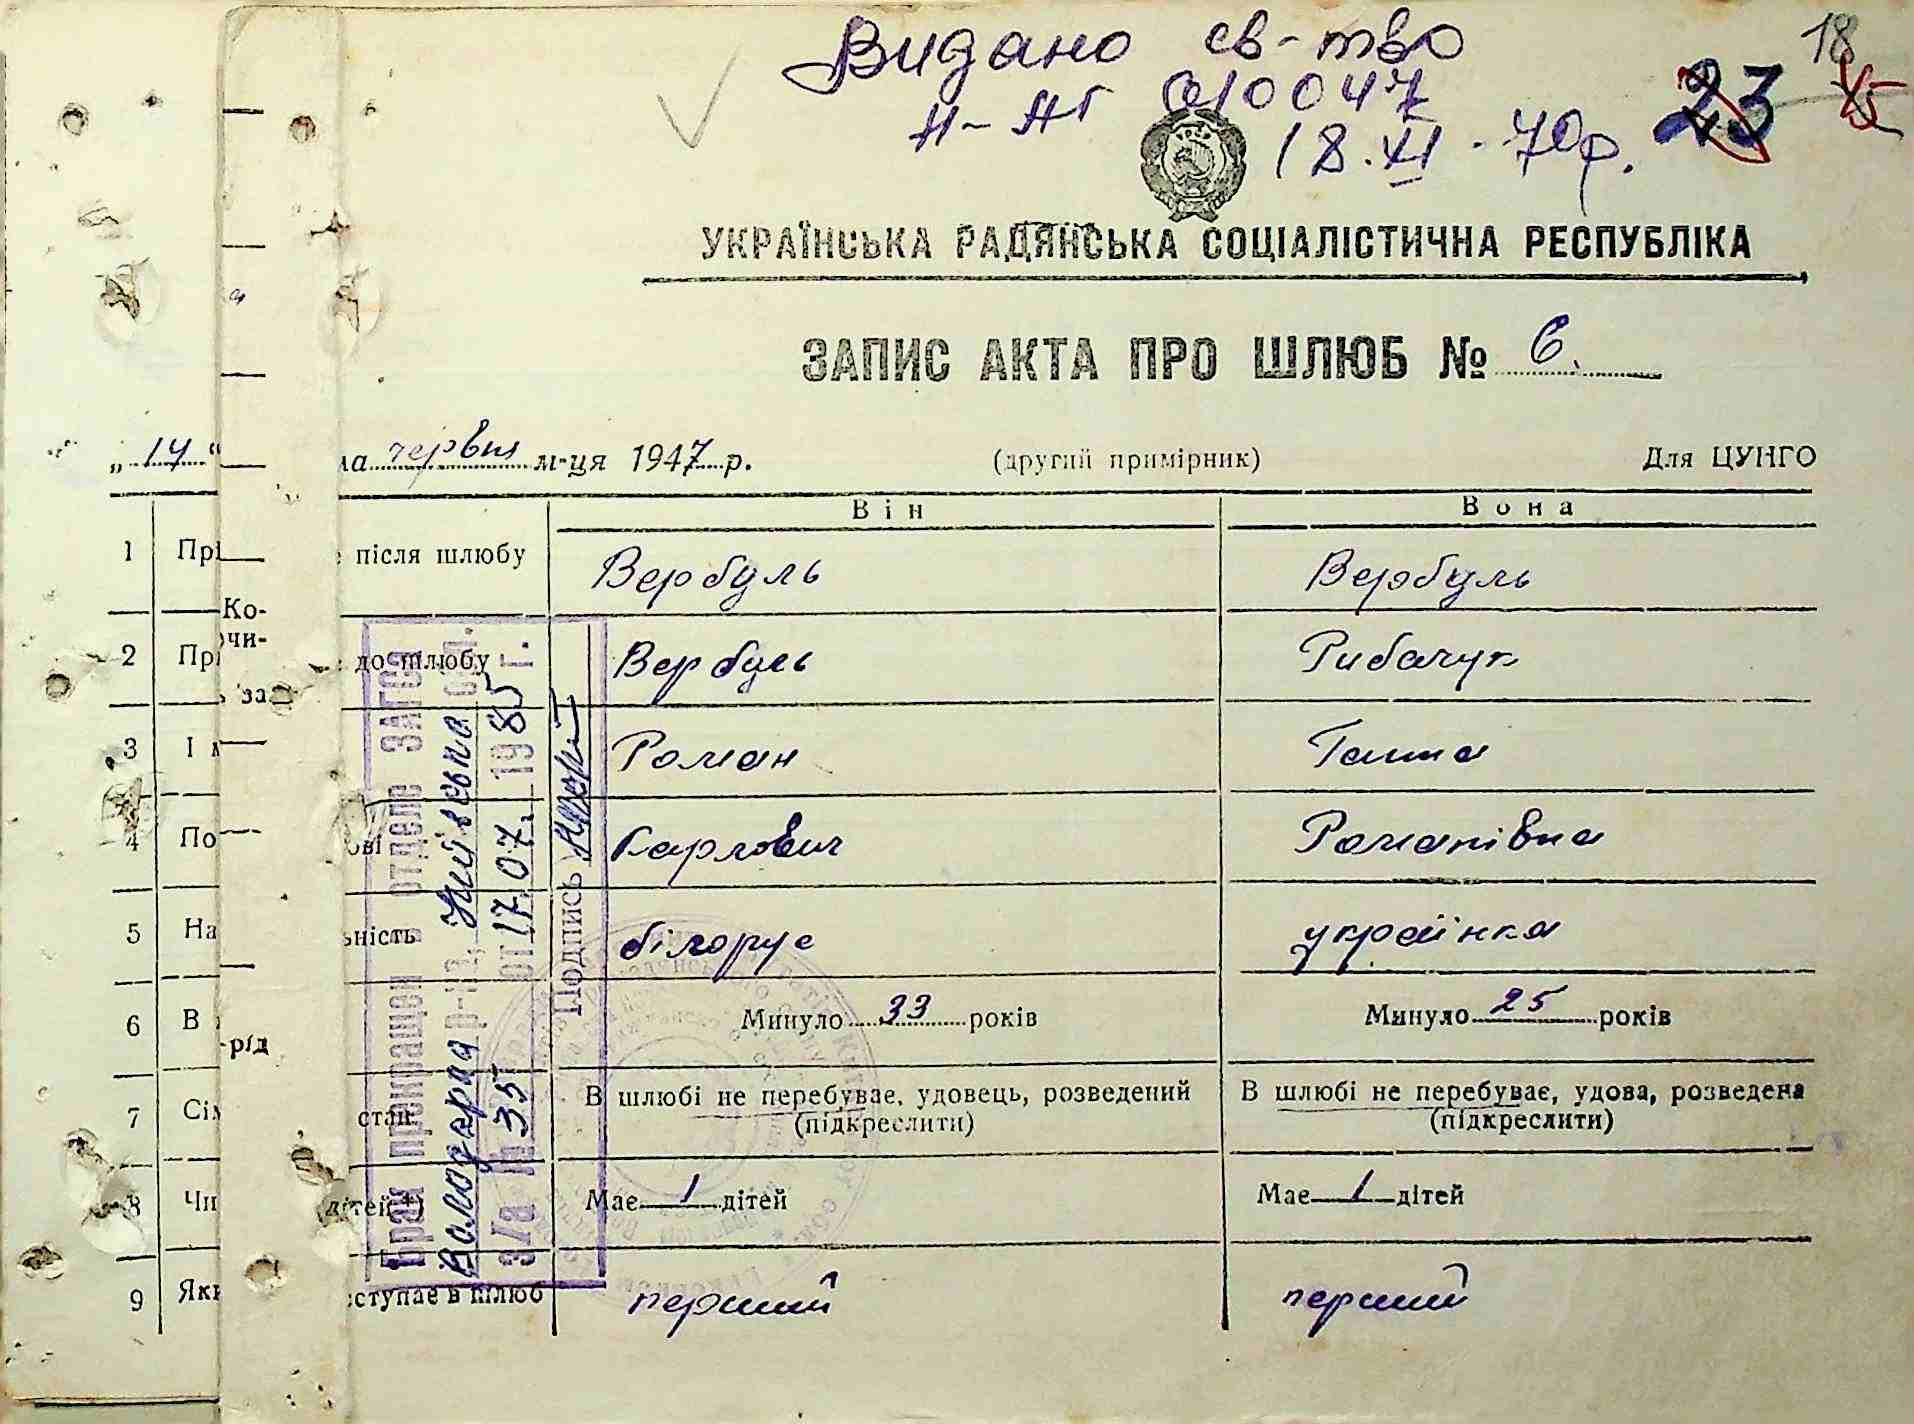 Видано св-тво
18
II-АГ 010047
23
18.XI.70р.
УКРАЇНСЬКА РАДЯНСЬКА СОЦІАЛІСТИЧНА РЕСПУБЛІКА
ЗАПИС АКТА ПРО ШЛЮБ № 6.
„14“ на червня м-ця 1947 р. (другий примірник) Для ЦУНГО
Він Вона
1 Прі після шлюбу Вербуль Вербуль
Ко-
чи-
2 Прі до шлюбу Вербуль Рибачук
за
3 І м Роман Ганна
4 По ові Карлович Романівна
5 На ьність білорус українка
6 В Минуло 33 років Минуло 25 років
рід
7 Сім стан В шлюбі не перебуває, удовець, розведений В шлюбі не перебуває, удова, розведена
(підкреслити) (підкреслити)
8 Чи дітей Має 1 дітей Має 1 дітей
9 Яки вступає в шлюб перший перший
Брак прекращен в отделе ЗАГСа
р-на, обл.
з/а № 35 от 17.07.1985 г.
Подпись